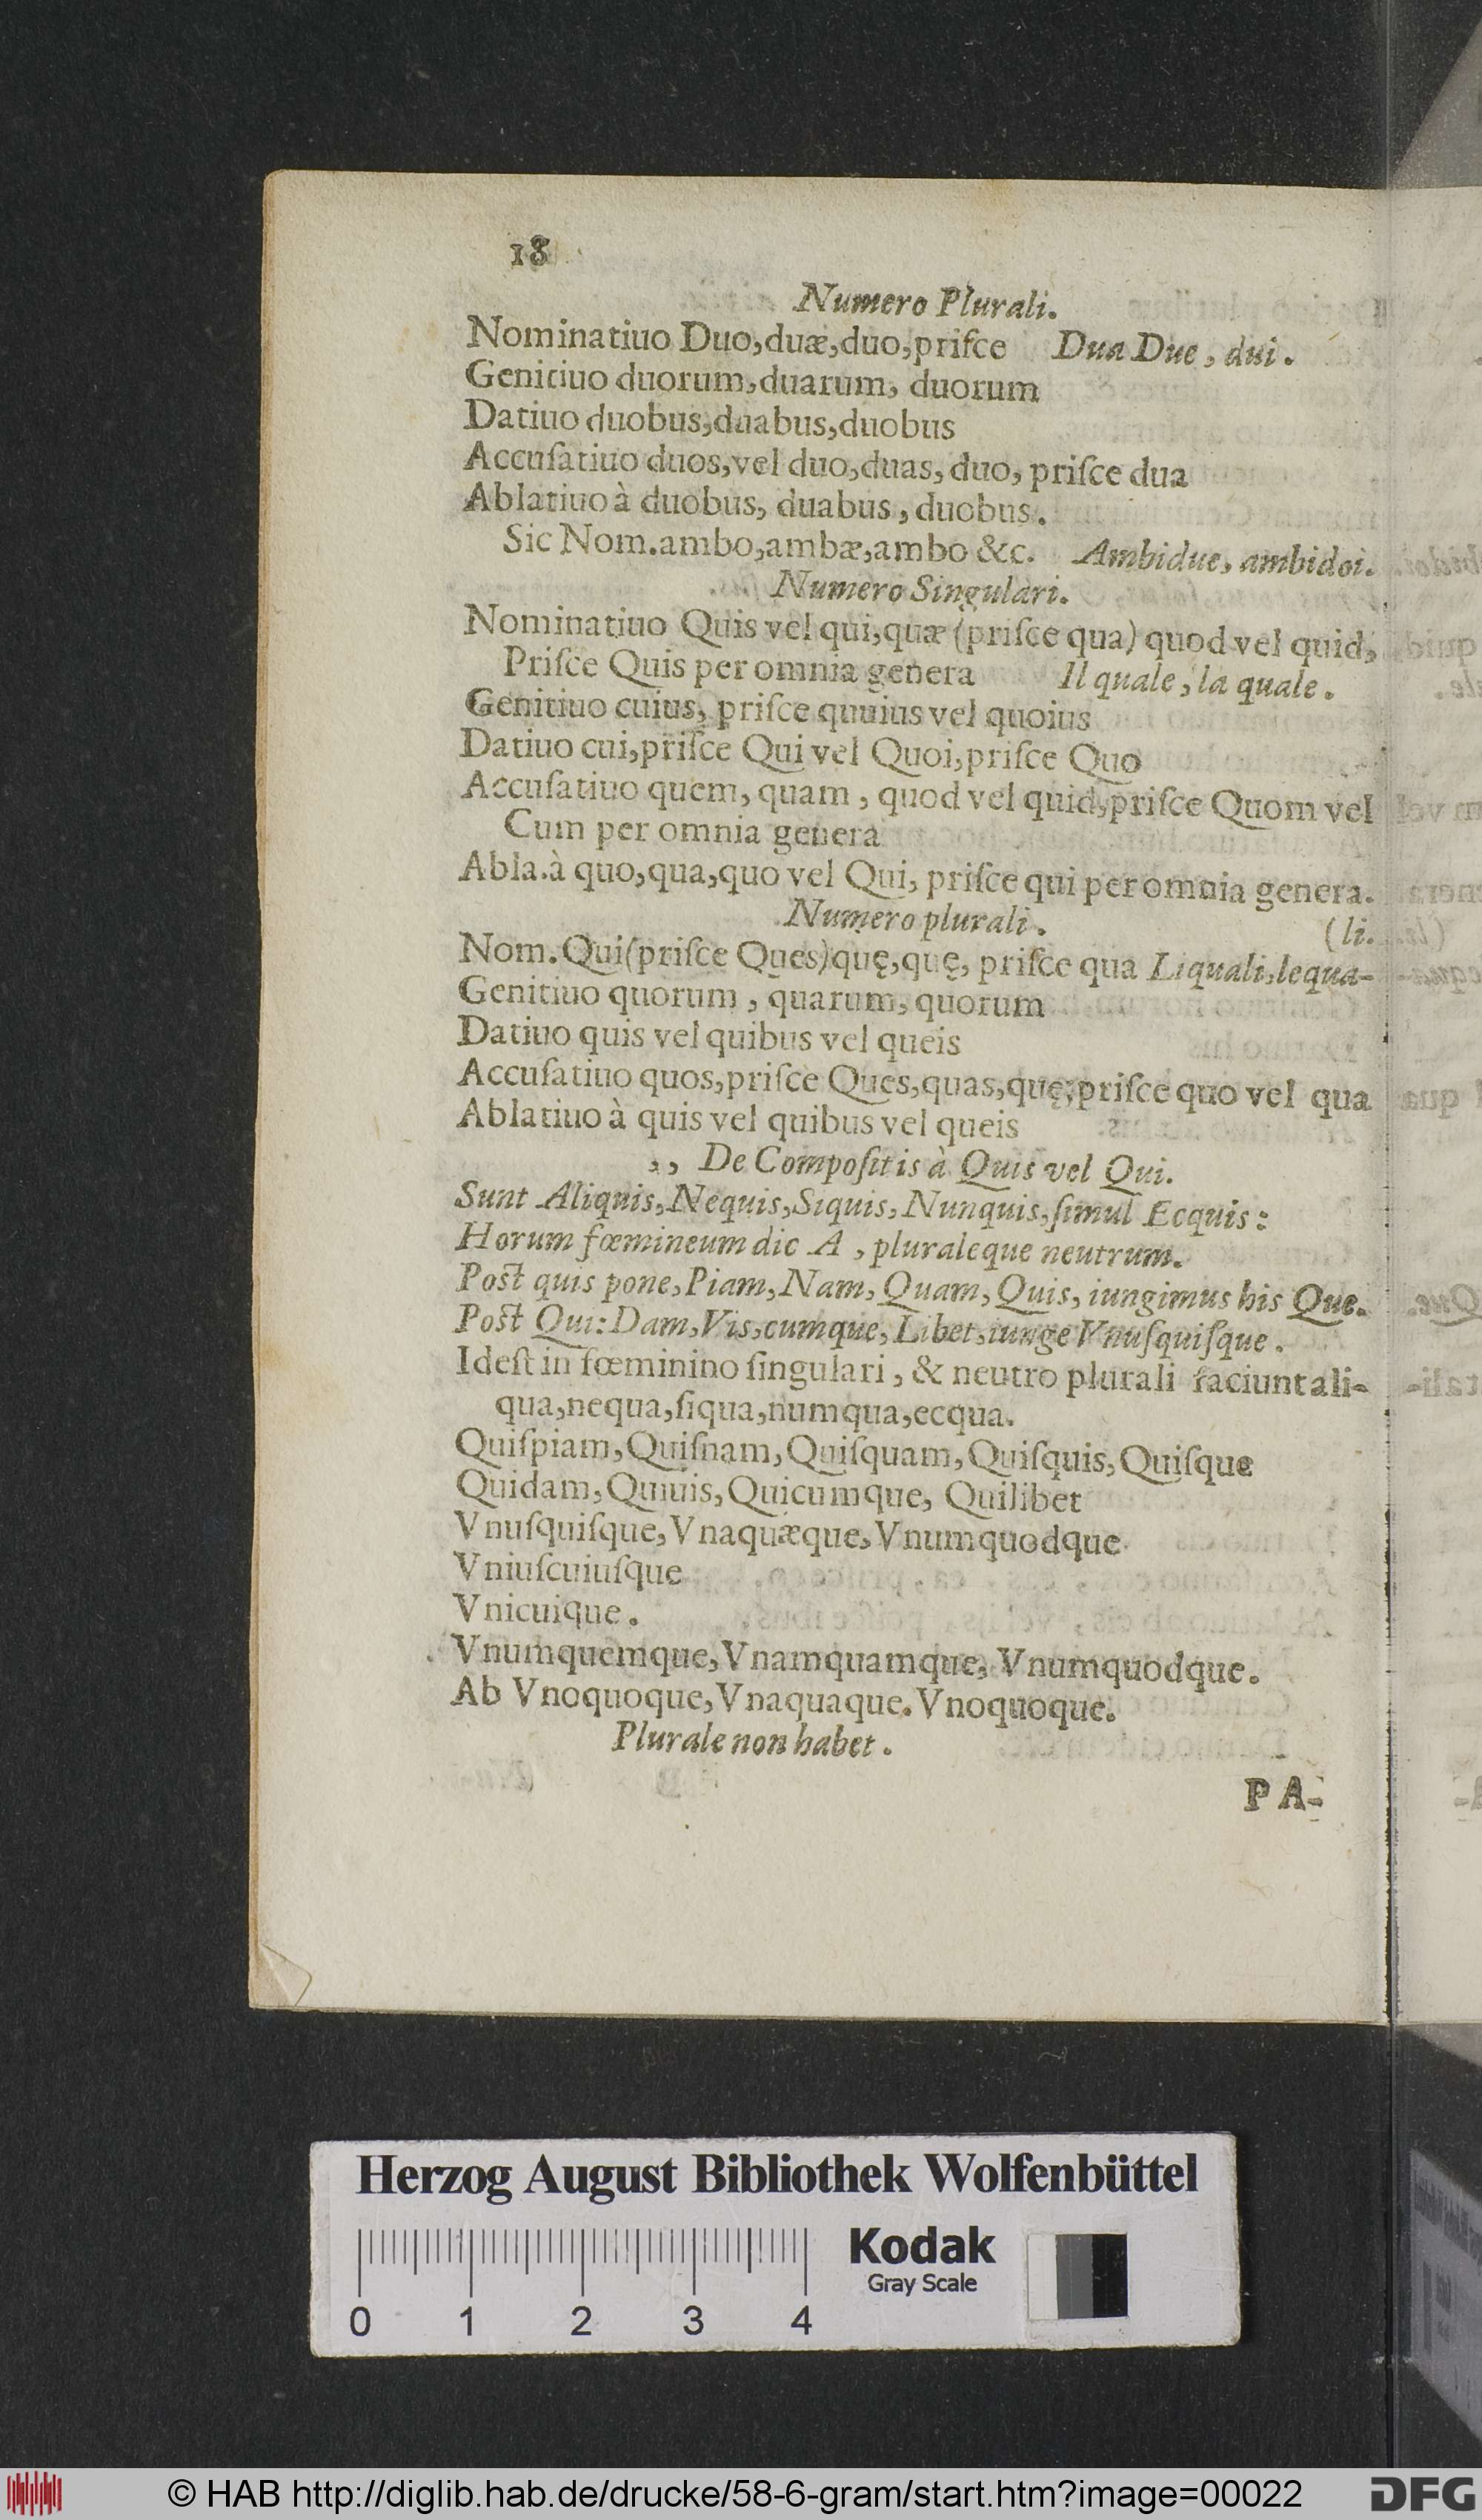 18
Numero Plurali.
Nominatiuo Duo,duæ,duo,priſce Dua Due, dui.
Genitiuo duorum,duarum, duorum
Datiuo duobus,duabus,duobus
Accuſatiuo duos,vel duo,duas, duo, priſce dua
Ablatiuo à duobus, duabus, duobus.
Sic Nom.ambo,ambæ,ambo &c. Ambidue, ambidoi.
Numero Singulari.
Nominatiuo Quis vel qui,quæ (priſce qua) quod vel quid,
Priſce Quis per omnia genera Il quale, la quale.
Genitiuo cuius, priſce quuius vel quoius
Datiuo cui,priſce Qui vel Quoi,priſce Quo
Accuſatiuo quem, quam, quod vel quid,priſce Quom vel
Cum per omnia genera
Abla.à quo,qua,quo vel Qui, priſce qui per omnia genera.
Numero plurali. (li.
Nom.Qui(priſce Ques)quę,quę, priſce qua Liquali,lequa-
Genitiuo quorum, quarum, quorum
Datiuo quis vel quibus vel queis
Accuſatiuo quos,priſce Ques,quas,quę,priſce quo vel qua
Ablatiuo à quis vel quibus vel queis
,, De Compoſitis à Quis vel Qui.
Sunt Aliquis,Nequis,Siquis,Nunquis,ſimul Ecquis:
Horum fœmineum dic A, pluraleque neutrum.
Poſt quis pone,Piam,Nam,Quam,Quis, iungimus his Que.
Poſt Qui:Dam,Vis,cumque,Libet,iunge Vnuſquiſque.
Ideſt in fœminino ſingulari, & neutro plurali faciunt ali-
qua,nequa,ſiqua,numqua,ecqua.
Quiſpiam,Quiſnam,Quiſquam,Quiſquis,Quiſque
Quidam,Quiuis,Quicumque, Quilibet
Vnuſquiſque,Vnaquæque,Vnumquodque
Vniuſcuiuſque
Vnicuique.
Vnumquemque,Vnamquamque, Vnumquodque.
Ab Vnoquoque,Vnaquaque.Vnoquoque.
Plurale non habet.
PA-
Herzog August Bibliothek Wolfenbüttel
Kodak
Gray Scale
0 1 2 3 4
© HAB http://diglib.hab.de/drucke/58-6-gram/start.htm?image=00022
DFG